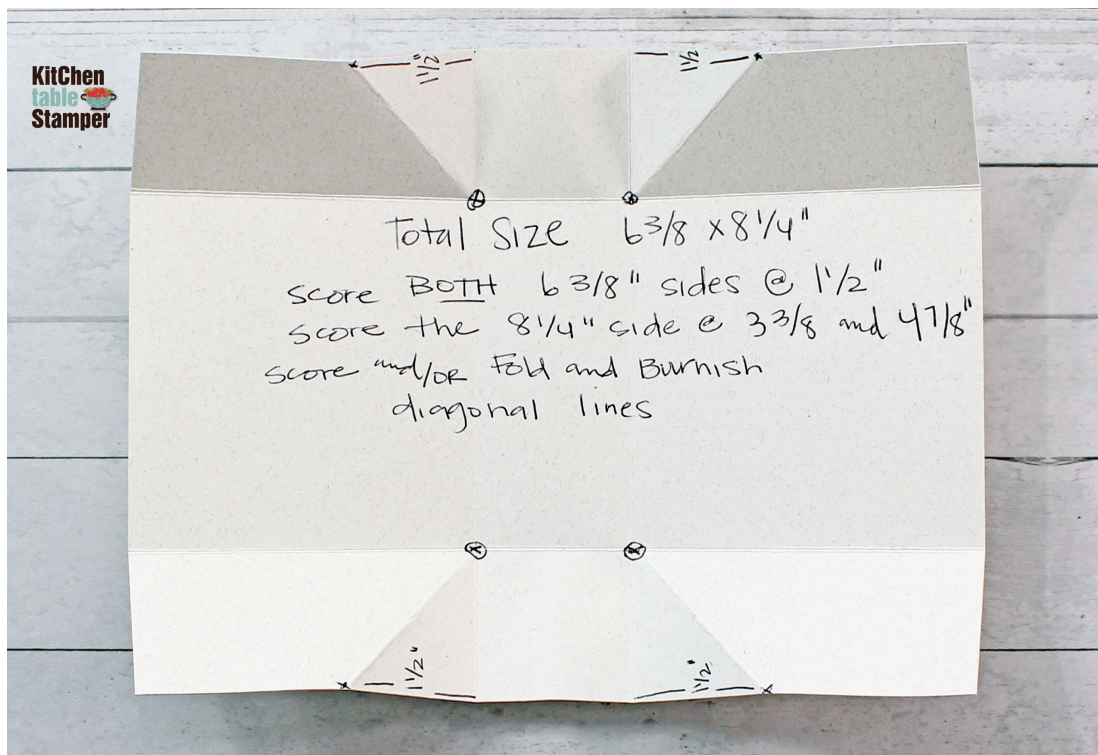 KitChen
table
Stamper
1 1/2"
1 1/2
Total Size 6 3/8 x 8 1/4"
score BOTH 6 3/8" sides @ 1 1/2"
score the 8 1/4" side @ 3 3/8 and 4 7/8"
score and/OR Fold and Burnish
diagonal lines
1 1/2"
1 1/2"